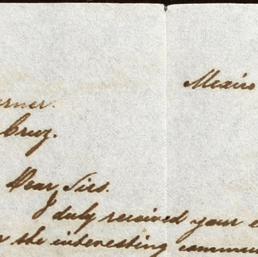 Mexico
Cruz.
Dear Sirs.
I duly received your
the interesting